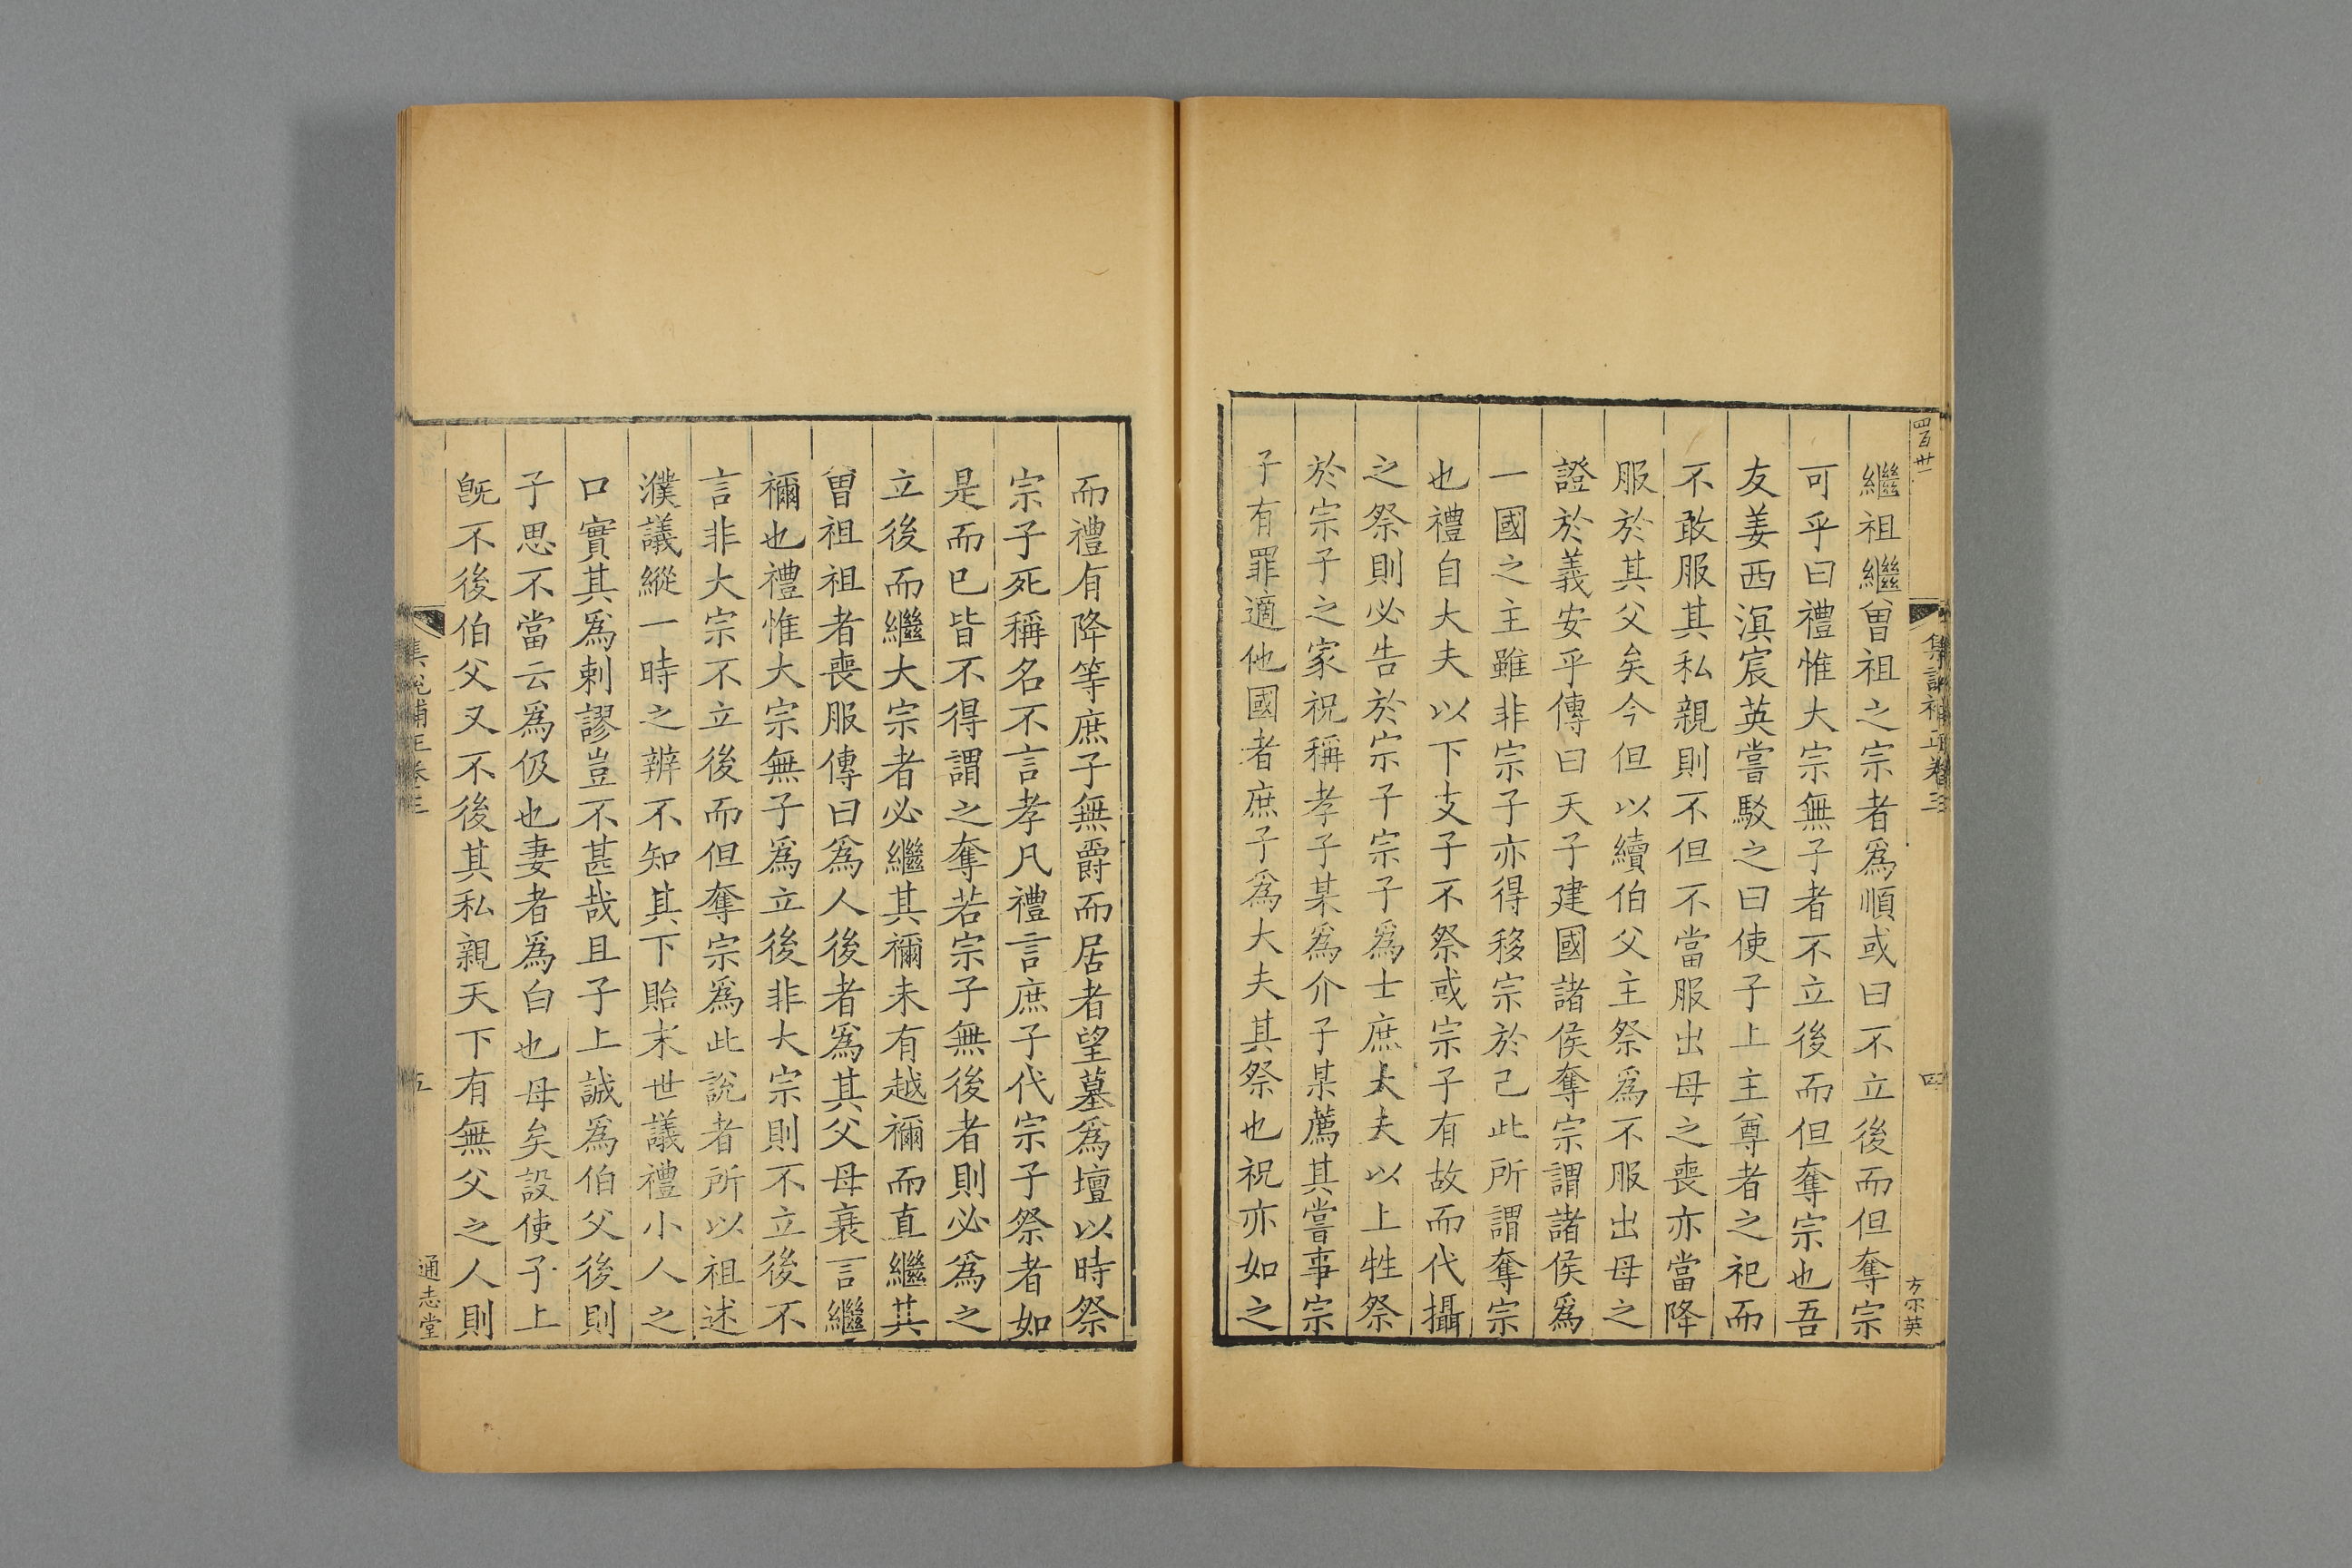 四百廿
集說補正卷三
四
方不英
繼祖繼曽祖之宗者爲順或曰不立後而但奪宗
可乎曰禮惟大宗無子者不立後而但奪宗也吾
友姜西溟宸英嘗駁之曰使子上主尊者之祀而
不敢服其私親則不但不當服出母之喪亦當降
服於其父矣今但以續伯父主祭爲不服出母之
證於義安乎傳曰天子建國諸侯奪宗謂諸侯爲
一國之主雖非宗子亦得移宗於己此所謂奪宗
也禮自大夫以下支子不祭或宗子有故而代攝
之祭則必告於宗子宗子爲士庶大夫以上牲祭
於宗子之家祝稱孝子某爲介子某薦其嘗事宗
子有罪適他國者庶子爲大夫其祭也祝亦如之
而禮有降等庶子無爵而居者望墓爲壇以時祭
宗子死稱名不言孝凡禮言庶子代宗子祭者如
是而已皆不得謂之奪若宗子無後者則必爲之
立後而繼大宗者必繼其禰未有越禰而直繼其
曽祖祖者喪服傳曰爲人後者爲其父母衰言繼
禰也禮惟大宗無子爲立後非大宗則不立後不
言非大宗不立後而但奪宗爲此說者所以祖述
濮議縱一時之辨不知其下貽末世議禮小人之
口實其爲剌謬豈不甚哉且子上誠爲伯父後則
子思不當云爲伋也妻者爲白也母矣設使子上
旣不後伯父又不後其私親天下有無父之人則
集說補正卷三
五
通志堂